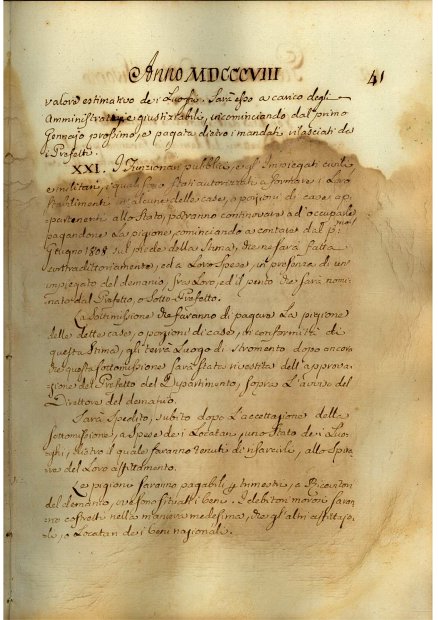 Anno MDCCCVIII 41
valore estimativo de i Luoghi. Sarà esso a carico degli
Amministratori, e giustiziabile, incominciando dal primo
Gennajo prossimo, e pagata dietro i mandati rilasciati da
i Prefetti.
XXI. I Funzionari pubblici, e gl'Impiegati civili
e militari, i quali sono stati autorizzati a formare i Loro
stabilimenti in alcune delle case, o porzioni di case ap
partenenti allo Stato, potranno continovare ad occuparle
pagandone La pigione, cominciando a contare dal pmo
Giugno 1808 sul piede della stima, che ne sarà fatta
contradittoriamente, ed a Loro Spese, in presenza di un
impiegato del demanio, fra Loro, ed il perito che sarà nomi
nato dal Prefetto, o Sotto-Prefetto.
La Sottomissione che faranno di pagare La pigione
delle dette case, o porzioni di case, in conformità di
questa stima, gli terrà Luogo di stromento dopo ancora
che questa sottomissione sarà stata rivestita dell'approva
zione del Prefetto del Dipartimento, sopra L'avviso del
Direttore del demanio.
Sarà spedito, subito dopo L'accettazione della
sottomissione, a spese de i Locatari, uno stato de i Luo
ghi, dietro il quale saranno tenuti di risarcirli, allo spira
re del Loro affittamento.
Le pigioni saranno pagabili p trimestri, a Ricevitori
del demanio, ove sono situati i beni. I debitori morosi saran
no costretti nella maniera medesima, che gl'altri affittajo
li, o Locatari de i beni nazionali.